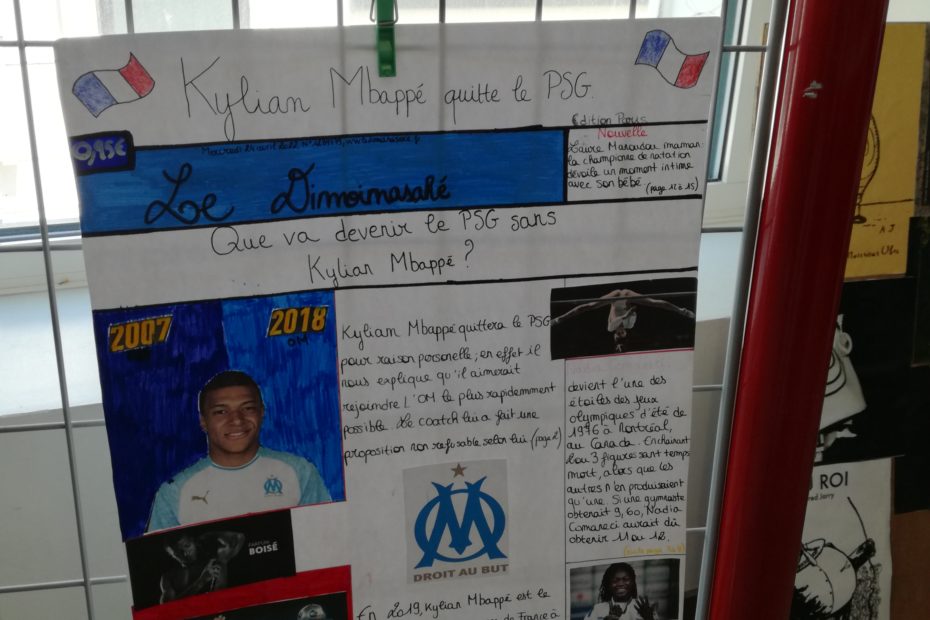 Kylian Mbappé quitte le PSG.
0,95€
Edition Paris
Nouvelle
Laure Manaudou maman:
la championne de natation
dévoile un moment intime
avec son bébé (page 12 à 15)
Le Dimoimasaké
Que va devenir le PSG sans
Kylian Mbappé ?
2007
2018
OM
Kylian Mbappé quittera le PSG
pour raison personelle; en effet il
nous explique qu'il aimerait
rejoindre L'OM le plus rapidemment
possible. Le coatch lui a fait une
proposition non refusable selon lui (page 2)
DROIT AU BUT
BOISÉ
En 2019, Kylian Mbappé est le
de France à
devient l'une des
étoiles des jeux
olympiques d'été de
1976 à Montréal,
au Canada. Enchainant
3 figures sant temps
mort, alors que les
autres n'en produisaient
qu'une. Si une gymnaste
obtenait 9,60, Nadia
Comaneci aurait dû
obtenir 11 ou 12.
AJ
ROI
red Jarry